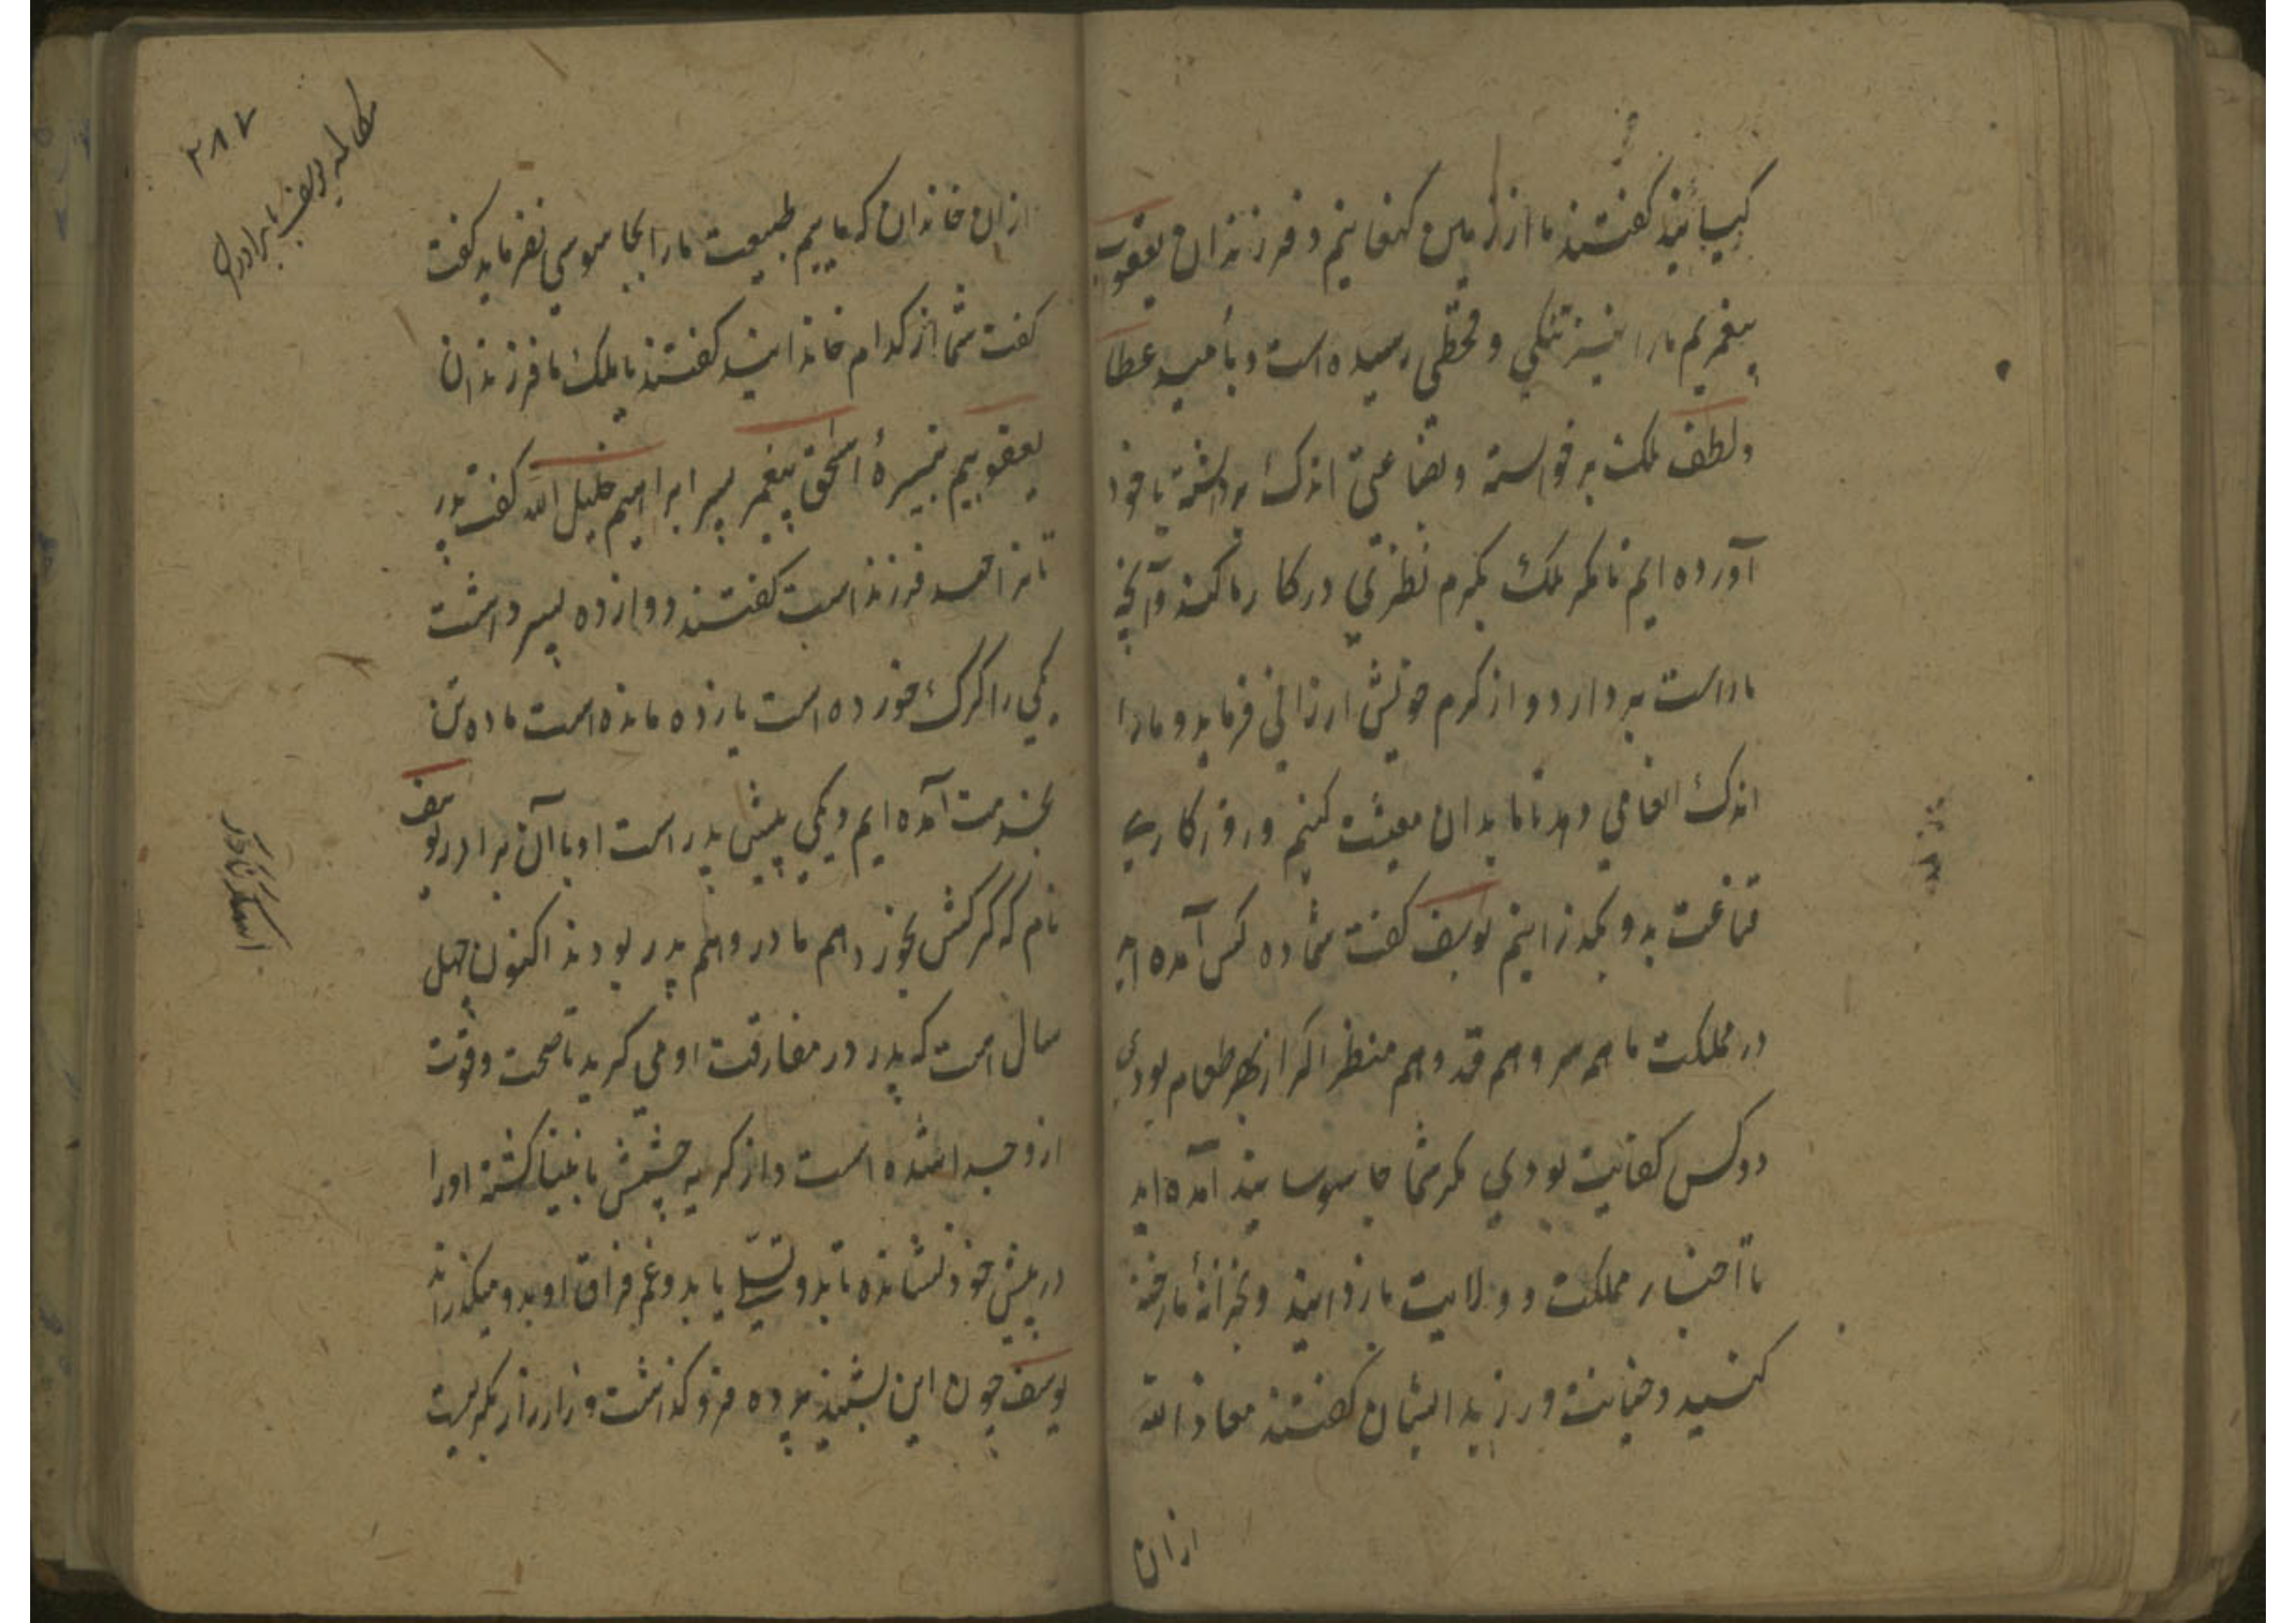 کیانید گفتند ما از زمین کنعانیم و فرزندان یعقوب
پیغمبریم ما را نیز تنکی و قحطی رسیده است و بامید عطا
و لطف ملک برخواسته و بضاعتی اندک برداشته با خود
آورده ایم تا مکر ملک بکرم نظری در کار ما کند و آنچه
ما راست بردارد و از کرم خویش ارزانی فرماید و ما را
اندک انعامی دهد تا ما بدان معیشت کنیم و روزکاری
قناعت بدو بکذرانیم یوسف کفت شما ده کس آمده اید
در مملکت ما هم سر و هم قد و هم منظر اکر از بهر طعام بودی
دو کس کفایت بودی مکر شما جاسوسانید آمده اید
تا اخبار مملکت و ولایت باز دانید و بخزانهٔ ما رخنه
کنید و خیانت ورزید ایشان کفتند معاذ الله
از ان
۲۸۷
مکالمه یوسف با برادران
از ان خاندان که ماییم طبیعت ما را بجاسوسی نفرماید کفت
کفت شما از کدام خاندانید کفتند یا ملک ما فرزندان
یعقوبیم نبیرهٔ اسحق پیغمبر پسر ابراهیم خلیل الله کفت پدر
تانرا چند فرزند است کفتند دوازده پسر داشت
یکی را کرک خورده است یازده مانده است ما ده تن
بخدمت آمده ایم و یکی پیش پدر است او با آن برادر یوسف
نام که کرکش بخورد هم مادر و هم پدر بودند اکنون چهل
سال است که پدر در مفارقت او می کرید تا صحت و قوت
ازو جدا شده است و از کریه چشمش نابینا کشته او را
در پیش خود نشانده تا بدو تسلی یابد و غم فراق او بدو میکذراند
یوسف چون این بشنید پرده فرو کذاشت و زار زار بکریست